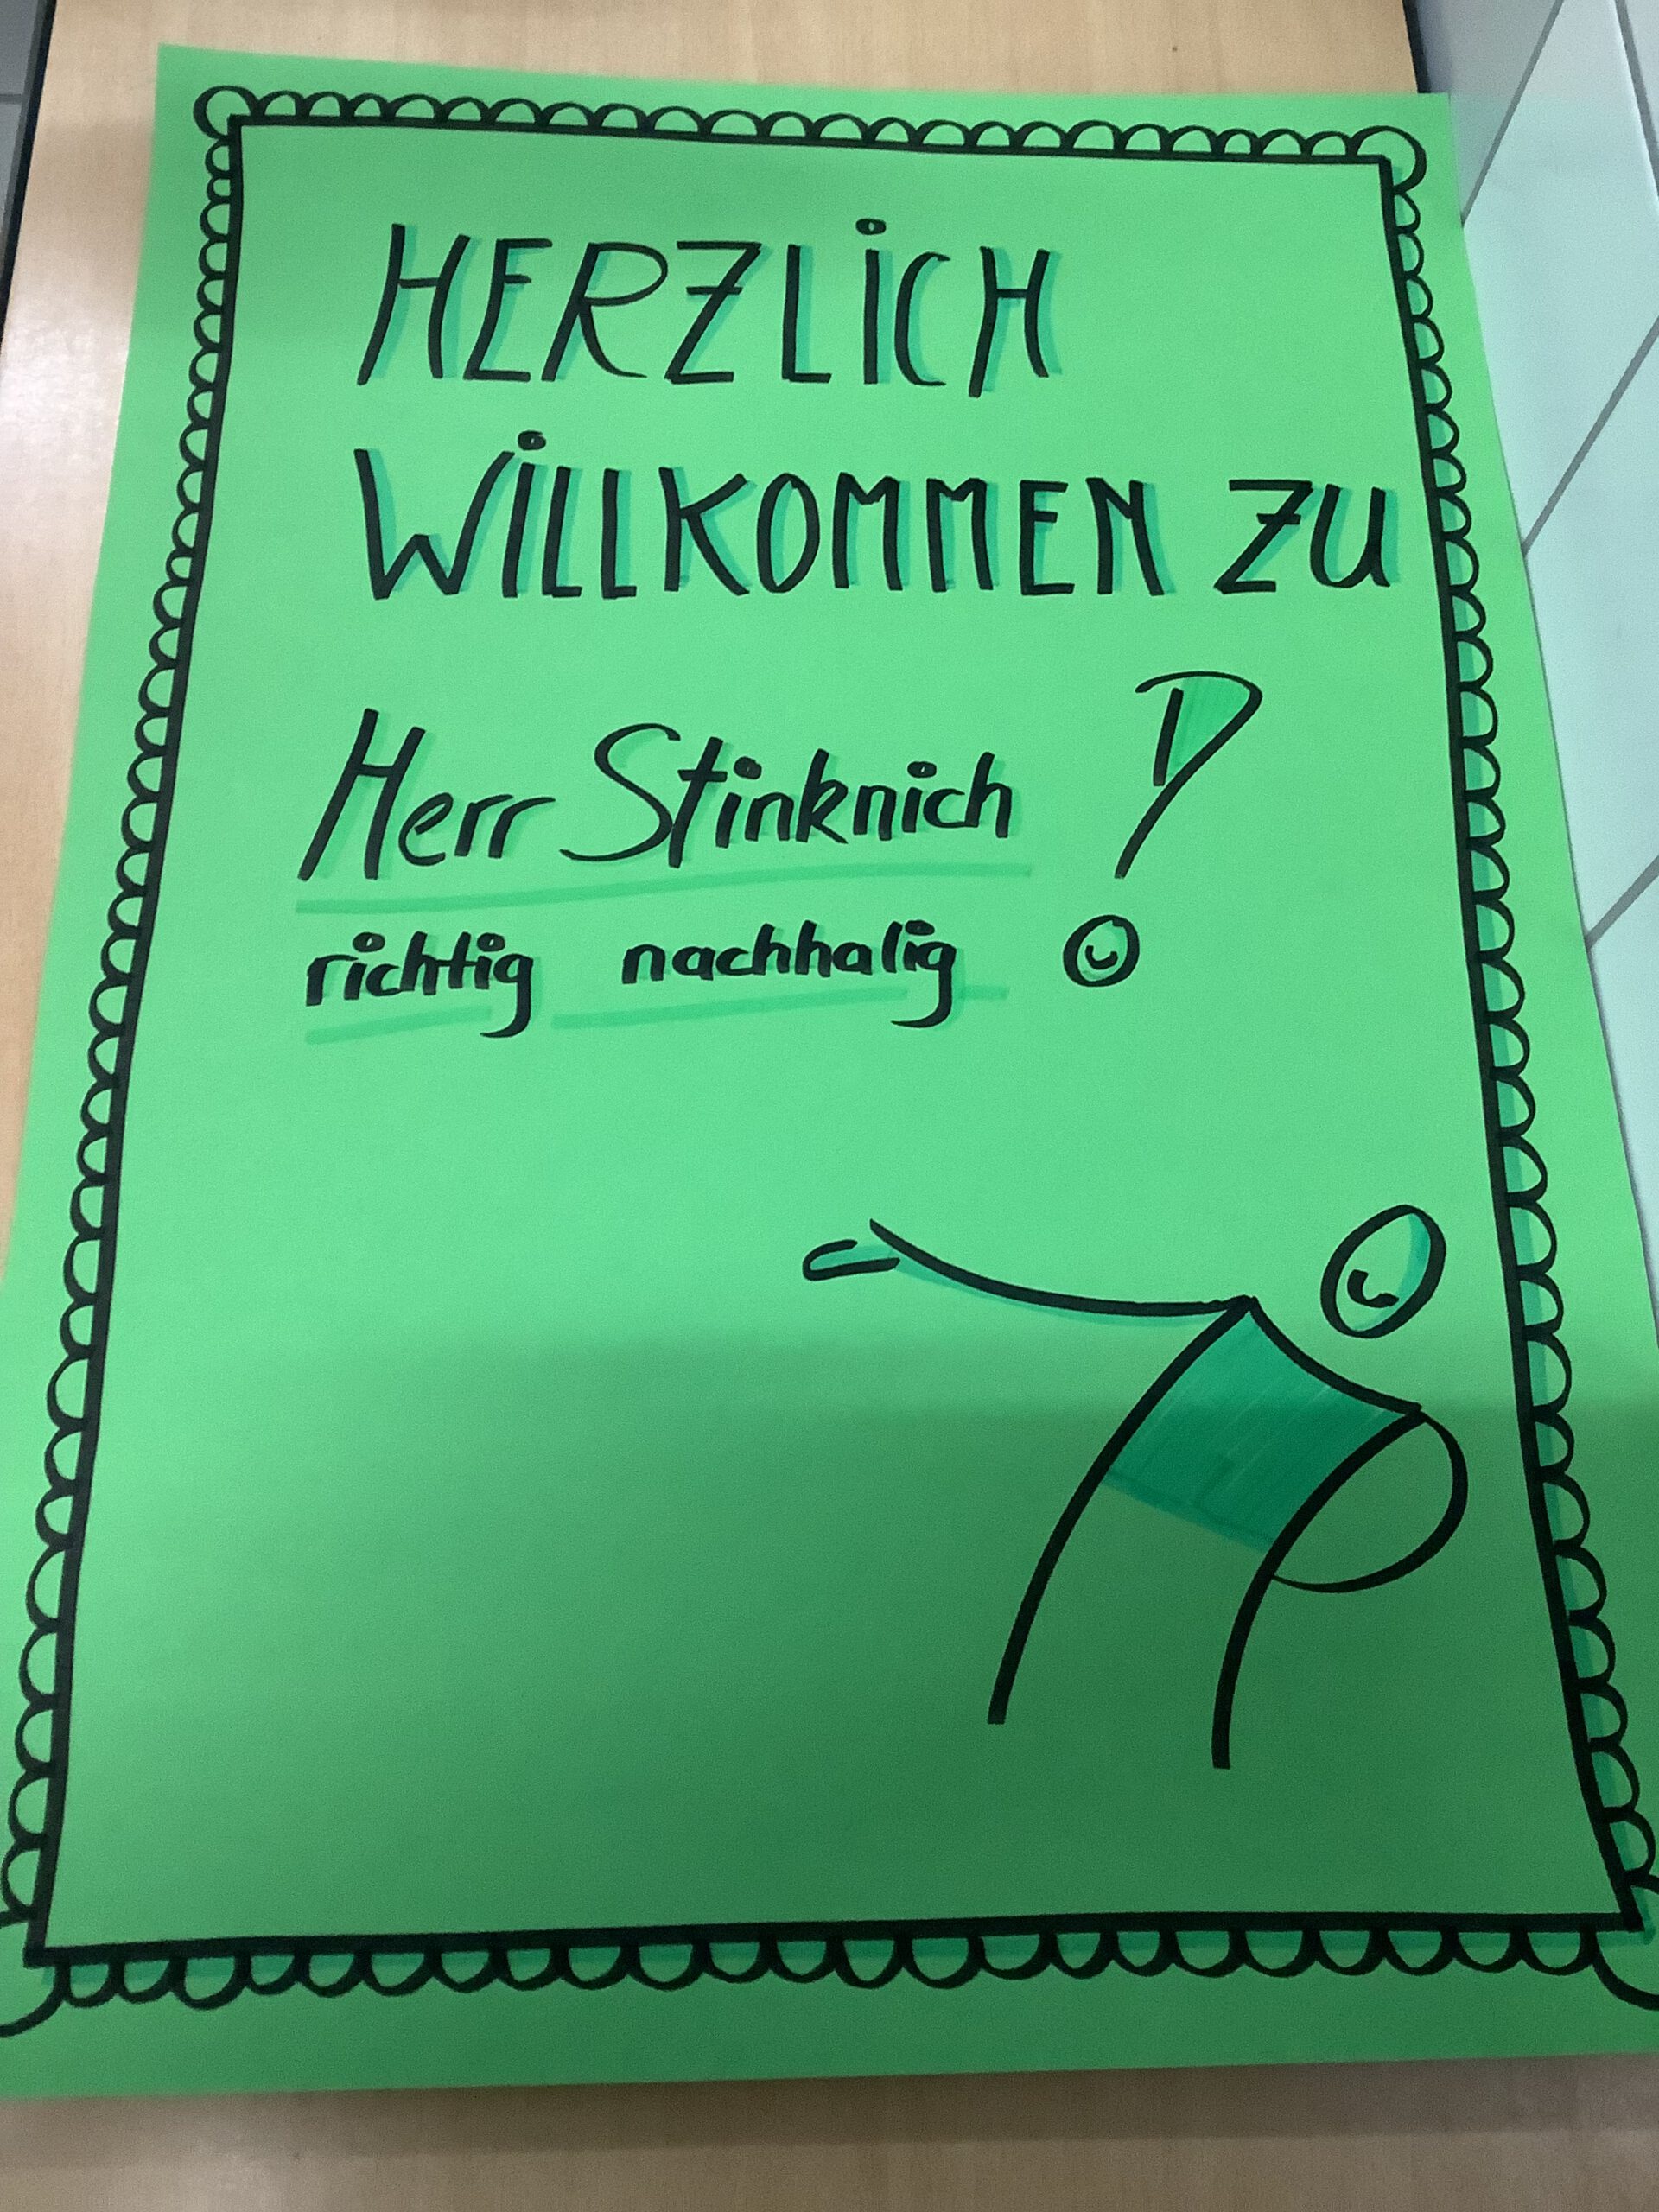 HERZLICH
WILLKOMMEN ZU
Herr Stinknich
richtig nachhalig